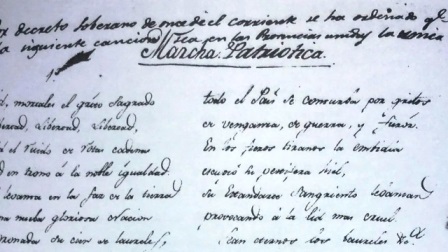 decreto soberano de once del corriente se ha ordenado qe
la siguiente cancion sea en las Provincias unidas la unica
Marcha Patriotica.
1º
mortales el grito Sagrado
Libertad, Libertad,
el ruido de rotas cadenas
en trono à la noble igualdad.
levanta en la faz de la tierra
nueba gloriosa nacion
su cien de laureles,
todo el Pais se conturba por gritos
de venganza, de guerra, y furor.
En los fieros tiranos la embidia
escupió su pestifera hiel,
su Estandarte Sangriento levantan
provocando à la lid mas cruel
Sean eternos los laureles &a